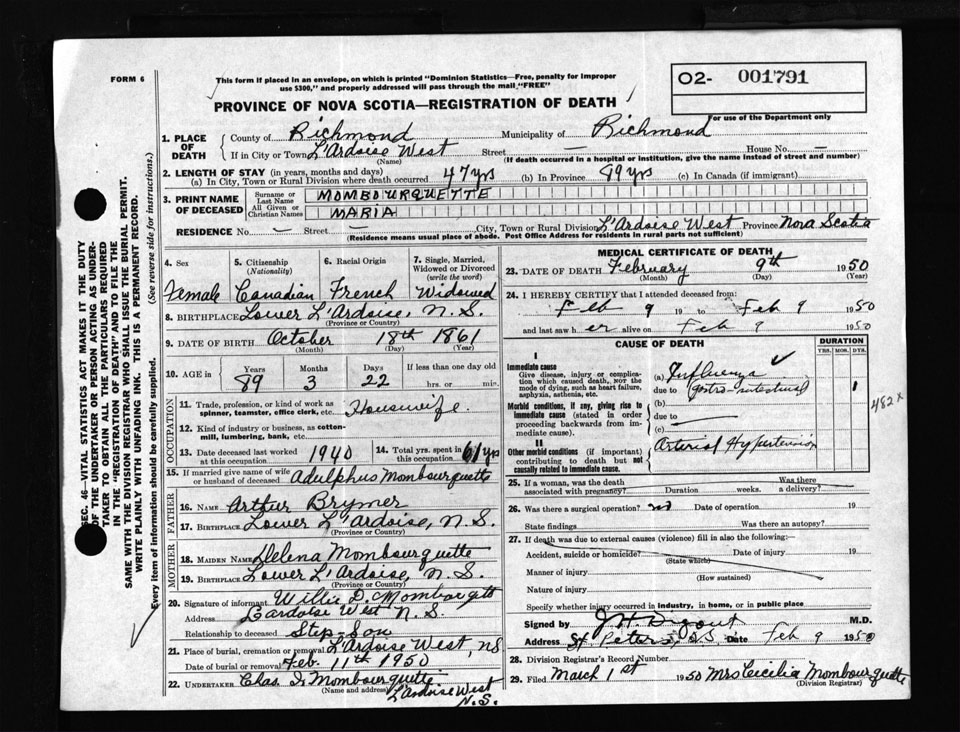 FORM 6
This form if placed in an envelope, on which is printed "Dominion Statistics—Free, penalty for improper
use $300," and properly addressed will pass through the mail "FREE"
02- 001791
For use of the Department only
PROVINCE OF NOVA SCOTIA—REGISTRATION OF DEATH
1. PLACE OF DEATH County of Richmond Municipality of Richmond
If in City or Town L'Ardoise West Street — House No. —
(Name) (If death occurred in a hospital or institution, give the name instead of street and number)
2. LENGTH OF STAY (in years, months and days)
(a) In City, Town or Rural Division where death occurred 47 yrs (b) In Province 89 yrs (c) In Canada (if immigrant)
3. PRINT NAME OF DECEASED Surname or Last Name MOMBOURQUETTE
All Given or Christian Names MARIA
RESIDENCE No. — Street — City, Town or Rural Division L'Ardoise West Province Nova Scotia
(Residence means usual place of abode. Post Office Address for residents in rural parts not sufficient)
4. Sex 5. Citizenship (Nationality) 6. Racial Origin 7. Single, Married, Widowed or Divorced (write the word)
Female Canadian French Widowed
8. BIRTHPLACE Lower L'Ardoise, N.S.
(Province or Country)
9. DATE OF BIRTH October 18th 1861
(Month) (Day) (Year)
10. AGE in Years Months Days If less than one day
89 3 22 hrs. or min.
OCCUPATION
11. Trade, profession, or kind of work as spinner, teamster, office clerk, etc. Housewife
12. Kind of industry or business, as cotton-mill, lumbering, bank, etc.
13. Date deceased last worked at this occupation 1940 14. Total yrs. spent in this occupation 61 yrs
15. If married give name of wife or husband of deceased Adulphus Mombourquette
FATHER
16. Name Arthur Brymer
17. BIRTHPLACE Lower L'Ardoise, N.S.
MOTHER
18. MAIDEN NAME Helena Mombourquette
19. BIRTHPLACE Lower L'Ardoise, N.S.
(Province or Country)
20. Signature of informant Willie D. Mombourqett
Address Lardoise West N.S.
Relationship to deceased Step-Son
21. Place of burial, cremation or removal L'Ardoise West, NS
Date of burial or removal Feb. 11th 1950
22. UNDERTAKER Chas. I. Mombourquette
(Name and address) L'Ardoise West
N.S.
MEDICAL CERTIFICATE OF DEATH
23. DATE OF DEATH February 9th 1950
(Month) (Day) (Year)
24. I HEREBY CERTIFY that I attended deceased from:
Feb 9 19 to Feb 9 1950
and last saw h er alive on Feb 9 1950
CAUSE OF DEATH DURATION
YRS. MOS. DYS.
I
Immediate cause
Give disease, injury or complication which caused death, NOT the mode of dying, such as heart failure, asphyxia, asthenia, etc.
(a) Influenza
due to gastro-intestinal 1
(b)
482x
Morbid conditions, if any, giving rise to immediate cause (stated in order proceeding backwards from immediate cause).
due to
(c)
II
Other morbid conditions (if important) contributing to death but not causally related to immediate cause.
Arterial Hypertension
25. If a woman, was the death associated with pregnancy? Duration weeks. Was there a delivery?
26. Was there a surgical operation? no Date of operation 19
State findings Was there an autopsy?
27. If death was due to external causes (violence) fill in also the following:—
Accident, suicide or homicide? Date of injury 19
(State which)
Manner of injury
(How sustained)
Nature of injury
Specify whether injury occurred in industry, in home, or in public place
Signed by J.H. Digout M.D.
Address St. Peters, N.S. Date Feb 9 1950
28. Division Registrar's Record Number
29. Filed March 1st 1950 Mrs Cecilia Mombourquette
(Division Registrar)
SEC. 46—VITAL STATISTICS ACT MAKES IT THE DUTY
OF THE UNDERTAKER OR PERSON ACTING AS UNDER-
TAKER TO OBTAIN ALL THE PARTICULARS REQUIRED
IN THE "REGISTRATION OF DEATH" AND TO FILE THE
SAME WITH THE DIVISION REGISTRAR WHO SHALL ISSUE THE BURIAL PERMIT.
WRITE PLAINLY WITH UNFADING INK. THIS IS A PERMANENT RECORD.
Every item of information should be carefully supplied. (See reverse side for instructions.)